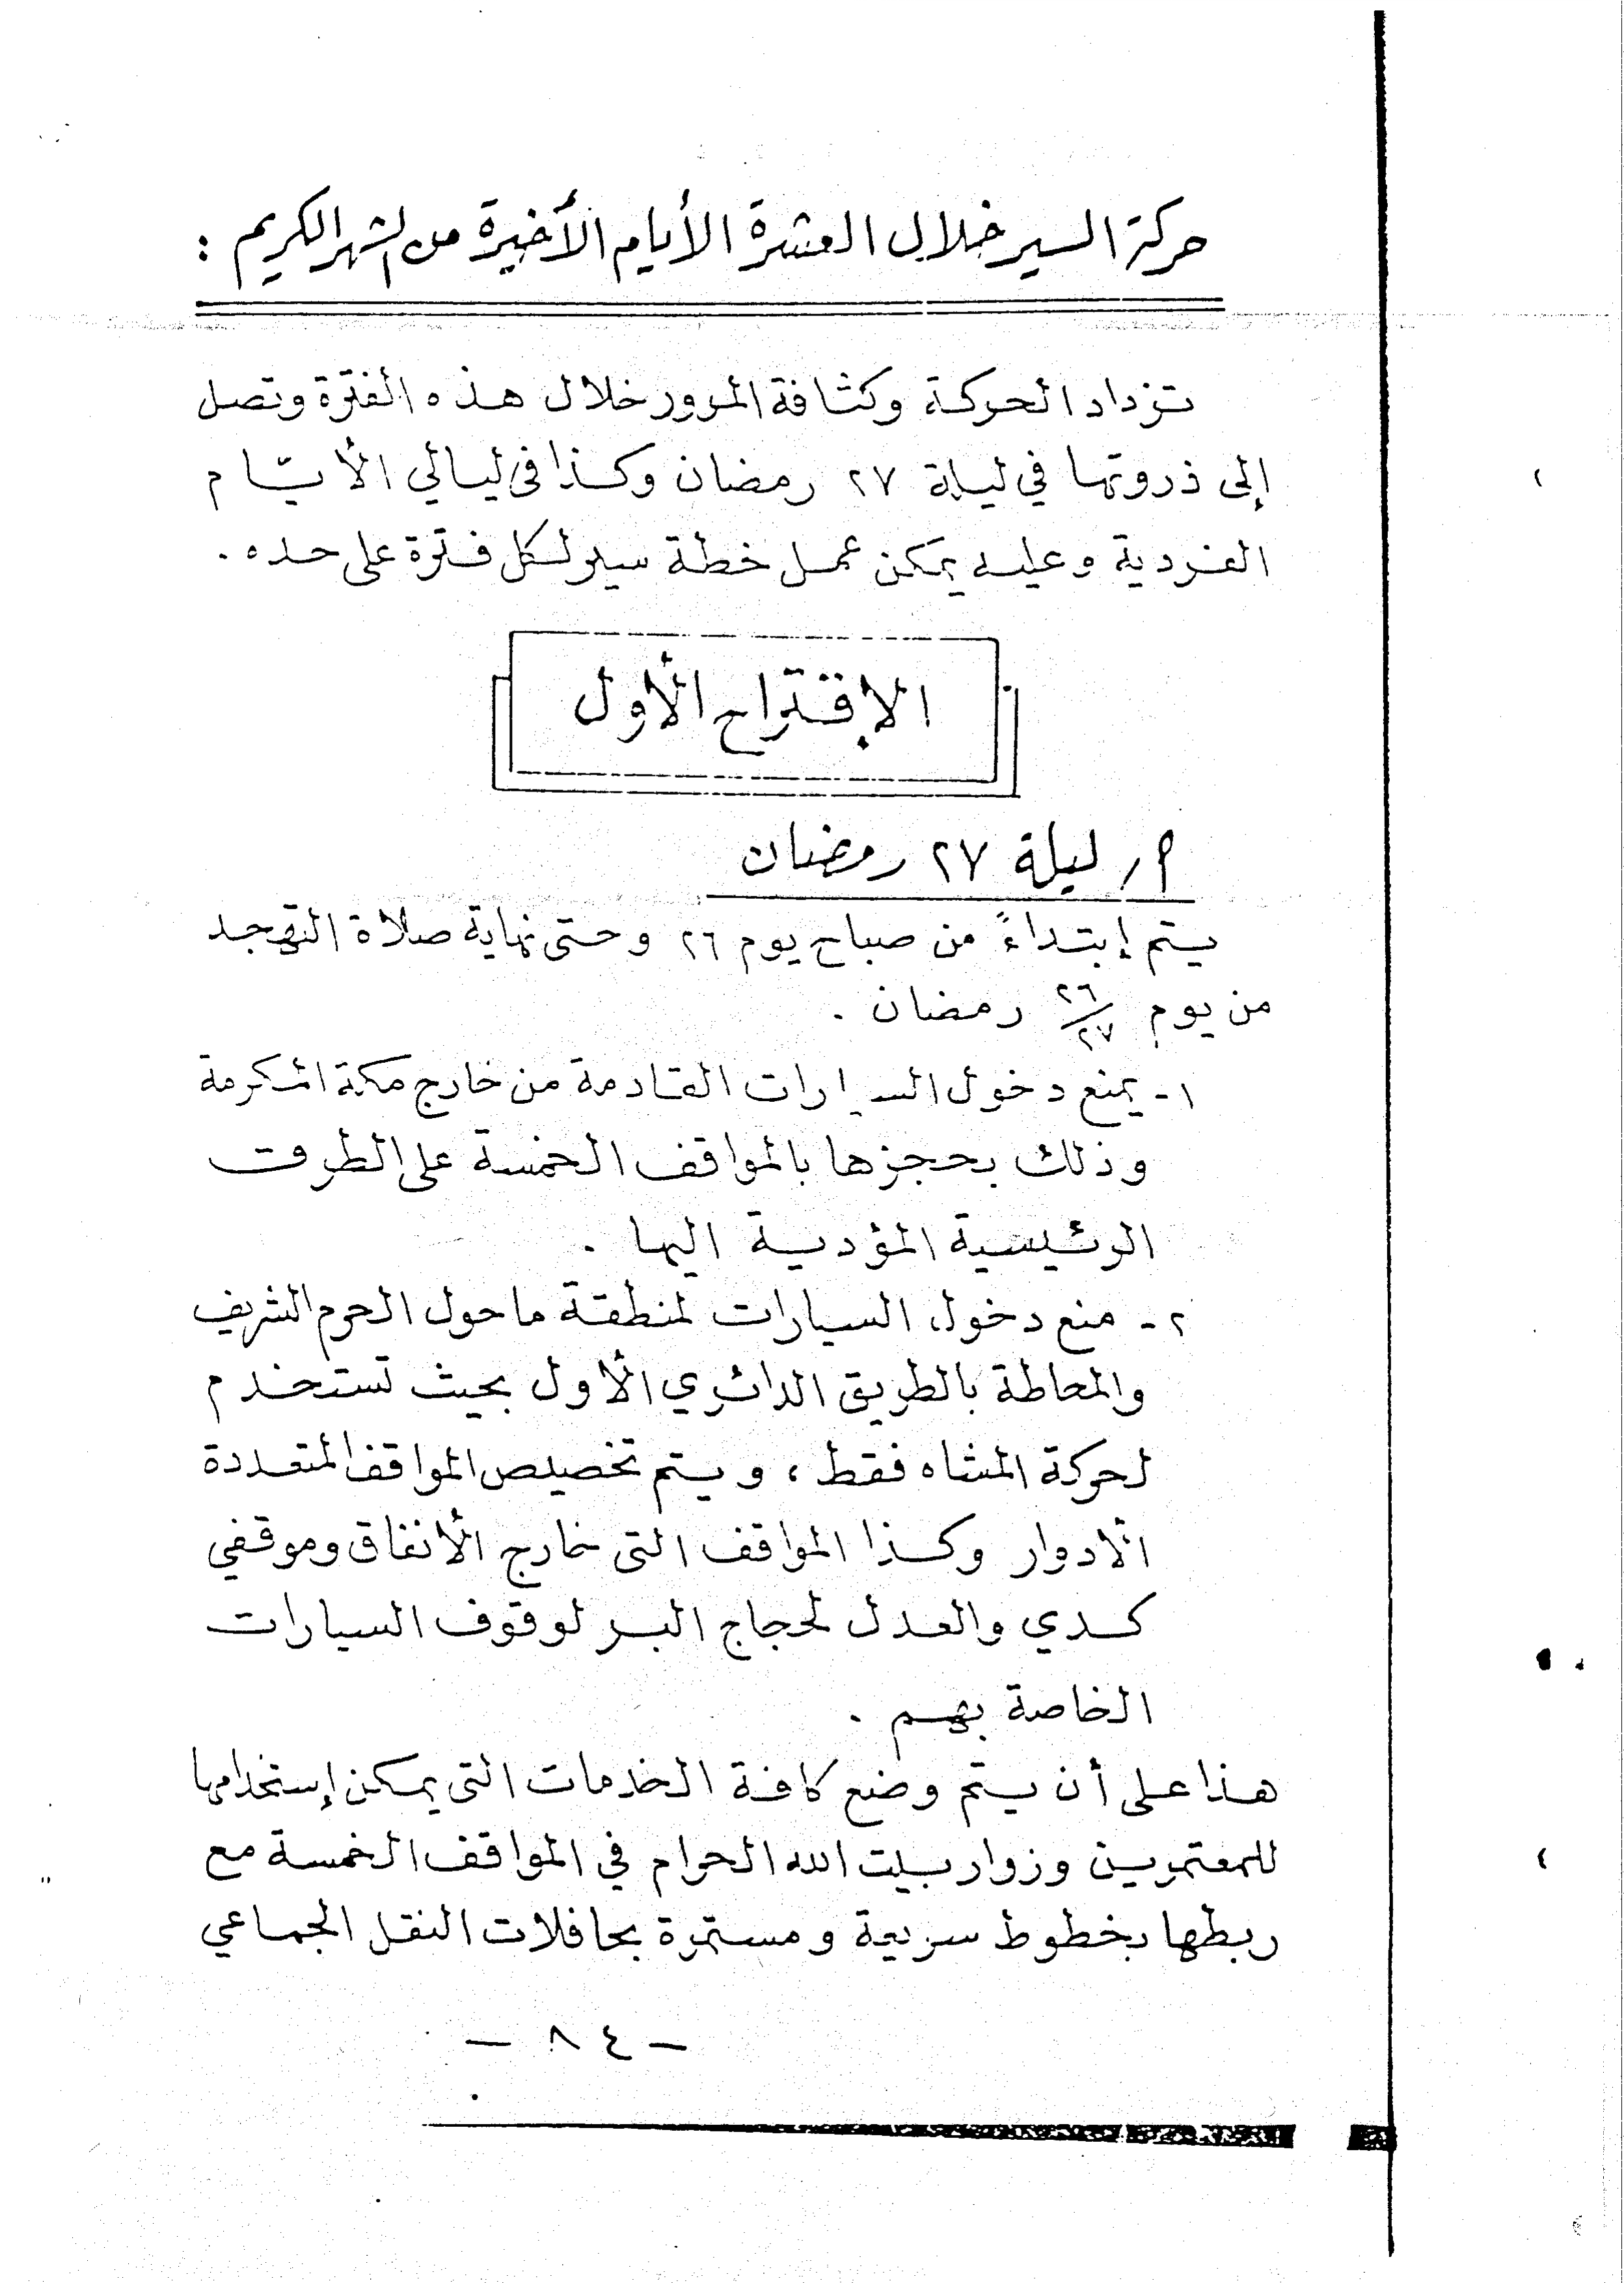 حركة السير خلال العشرة الأيام الأخيرة من الشهر الكريم :
تزداد الحركة وكثافة المرور خلال هذه الفترة وتصل
إلى ذروتها في ليلة ٢٧ رمضان وكذا في ليالي الأيّام
الفردية وعليه يمكن عمل خطة سير لكل فترة على حده .
الإقتراح الأول
أ , ليلة ٢٧ رمضان
يتم إبتداءً من صباح يوم ٢٦ وحتى نهاية صلاة التهجد
من يوم ٢٦/٢٧ رمضان .
١- يمنع دخول السيارات القادمة من خارج مكة المكرمة
وذلك بحجزها بالمواقف الخمسة على الطرق
الرئيسية المؤدية اليها .
٢- منع دخول السيارات لمنطقة ما حول الحرم الشريف
والمحاطة بالطريق الدائري الأول بحيث تستخدم
لحركة المشاه فقط ، ويتم تخصيص المواقف المتعددة
الأدوار وكذا المواقف التى خارج الأنفاق وموقفي
كدي والعدل لحجاج البر لوقوف السيارات
الخاصة بهم .
هذا على أن يتم وضع كافة الخدمات التى يمكن إستخدامها
للمعتمرين وزوار بيت الله الحرام في المواقف الخمسة مع
ربطها بخطوط سريعة ومستمرة بحافلات النقل الجماعي
- ٨٤ -